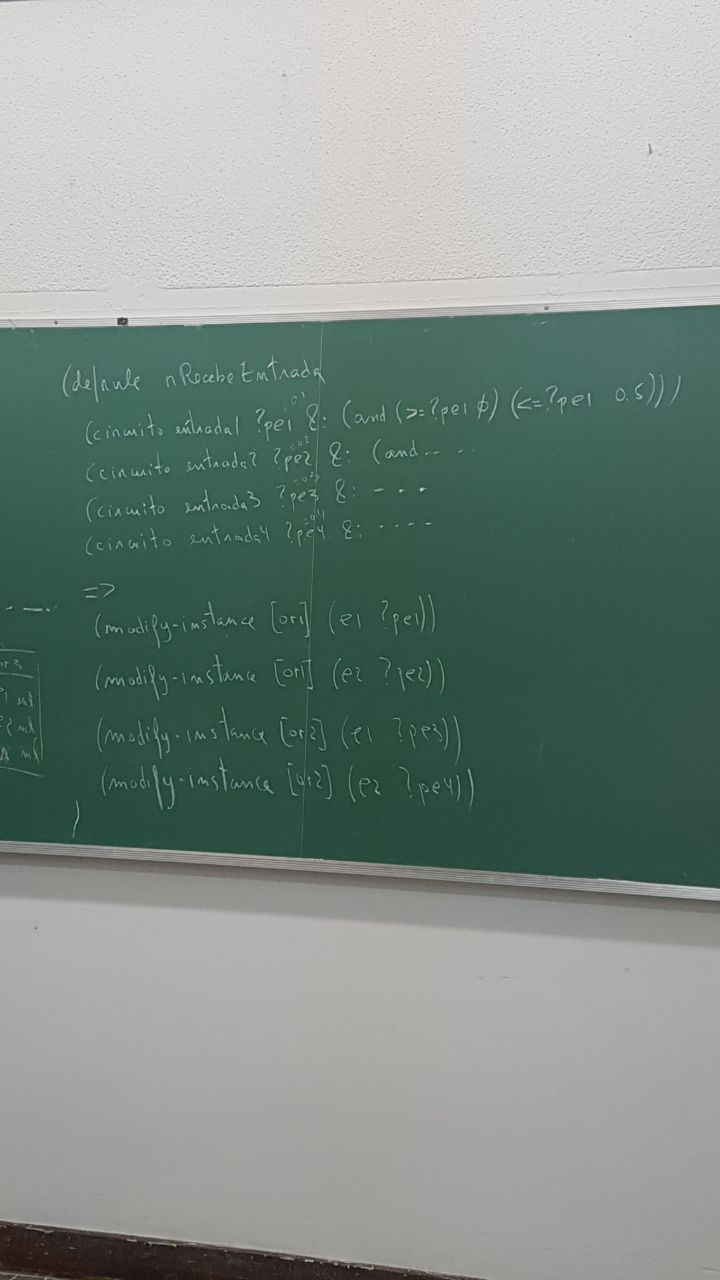 (defrule rRecebeEntrada
(circuito entrada1 ?pe1 &: (and (>= ?pe1 0) (<= ?pe1 0.5)))
(circuito entrada2 ?pe2 &: (and ... ..
(circuito entrada3 ?pe3 &: ...
(circuito entrada4 ?pe4 &: ....
=>
(modify-instance [or1] (e1 ?pe1))
(modify-instance [or1] (e2 ?pe2))
(modify-instance [or2] (e1 ?pe3))
(modify-instance [or2] (e2 ?pe4))
)
or3